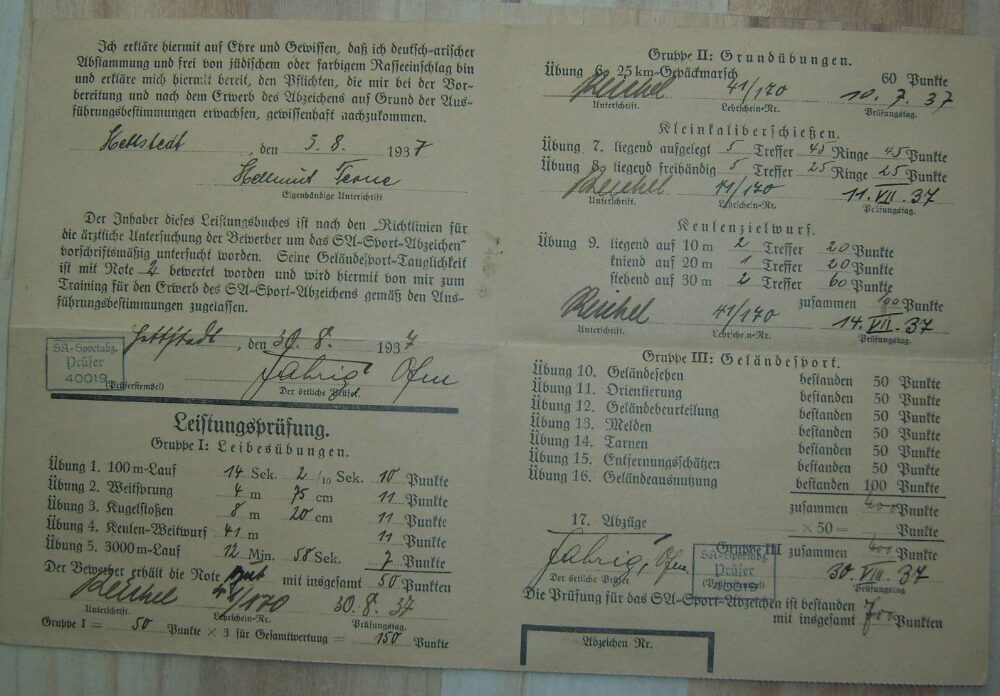 Ich erkläre hiermit auf Ehre und Gewissen, daß ich deutsch-arischer
Abstammung und frei von jüdischem oder farbigem Rasseeinschlag bin
und erkläre mich hiermit bereit, den Pflichten, die mir bei der Vor-
bereitung und nach dem Erwerb des Abzeichens auf Grund der Aus-
führungsbestimmungen erwachsen, gewissenhaft nachzukommen.
Hettstedt, den 5. 8. 1937
Hellmut
Eigenhändige Unterschrift
Der Inhaber dieses Leistungsbuches ist nach den „Richtlinien für
die ärztliche Untersuchung der Bewerber um das SA-Sport-Abzeichen“
vorschriftsmäßig untersucht worden. Seine Geländesport-Tauglichkeit
ist mit Note 2 bewertet worden und wird hiermit von mir zum
Training für den Erwerb des SA-Sport-Abzeichens gemäß den Aus-
führungsbestimmungen zugelassen.
Hettstedt, den 30. 8. 1937
SA-Sportabz.
Prüfer
40019
(Prüferstempel)
Der örtliche Prüfer
Leistungsprüfung.
Gruppe I: Leibesübungen.
Übung 1. 100 m-Lauf 14 Sek. 2 /10 Sek. 10 Punkte
Übung 2. Weitsprung 4 m 75 cm 11 Punkte
Übung 3. Kugelstoßen 8 m 20 cm 11 Punkte
Übung 4. Keulen-Weitwurf 41 m 11 Punkte
Übung 5. 3000 m-Lauf 12 Min. 58 Sek. 7 Punkte
Der Bewerber erhält die Note gut mit insgesamt 50 Punkten
Reichel 41/170 30. 8. 37
Unterschrift. Lehrschein-Nr. Prüfungstag.
Gruppe I = 50 Punkte × 3 für Gesamtwertung = 150 Punkte
Gruppe II: Grundübungen.
Übung 6. 25 km-Gepäckmarsch 60 Punkte
Reichel 41/170 10. 7. 37
Unterschrift. Lehrschein-Nr. Prüfungstag.
Kleinkaliberschießen.
Übung 7. liegend aufgelegt 5 Treffer 45 Ringe 45 Punkte
Übung 8. liegend freihändig 5 Treffer 25 Ringe 25 Punkte
Reichel 41/170 11. VII. 37
Unterschrift. Lehrschein-Nr. Prüfungstag.
Keulenzielwurf.
Übung 9. liegend auf 10 m 2 Treffer 20 Punkte
kniend auf 20 m 1 Treffer 20 Punkte
stehend auf 30 m 2 Treffer 60 Punkte
zusammen 100 Punkte
Reichel 41/170 14. VII. 37
Unterschrift. Lehrschein-Nr. Prüfungstag.
Gruppe III: Geländesport.
Übung 10. Geländesehen bestanden 50 Punkte
Übung 11. Orientierung bestanden 50 Punkte
Übung 12. Geländebeurteilung bestanden 50 Punkte
Übung 13. Melden bestanden 50 Punkte
Übung 14. Tarnen bestanden 50 Punkte
Übung 15. Entfernungsschätzen bestanden 50 Punkte
Übung 16. Geländeausnutzung bestanden 100 Punkte
zusammen 400 Punkte
17. Abzüge × 50 = Punkte
Gruppe III zusammen 400 Punkte
SA-Sportabz.
Prüfer
40019
30. VIII. 37
Der örtliche Prüfer (Prüferstempel) Prüfungstag
Die Prüfung für das SA-Sport-Abzeichen ist bestanden
mit insgesamt 700 Punkten
Abzeichen Nr.